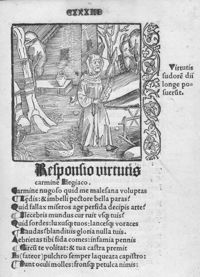 Virtutis
sudorē dii
longe po
suerūt.
Responsio virtutis
carmine Elegiaco.
Carmine nugoso quid me malesana voluptas
Lędis: & imbelli pectore bella paras?
Quid fallax miseros age perfida decipis artes
Illecebris mundus cur ruit vsq; tuis?
Quid sordes: luxus q; tuos: lancesq; voraces
Laudas blandiuis gloria nulla tuis.
Aebrietas tibi fida comes: infamia pennis
te volitat: & tua castra premit
pulchro semper laqueata capistro:
Sunt oculi molles: fronsq; petulca nimis: